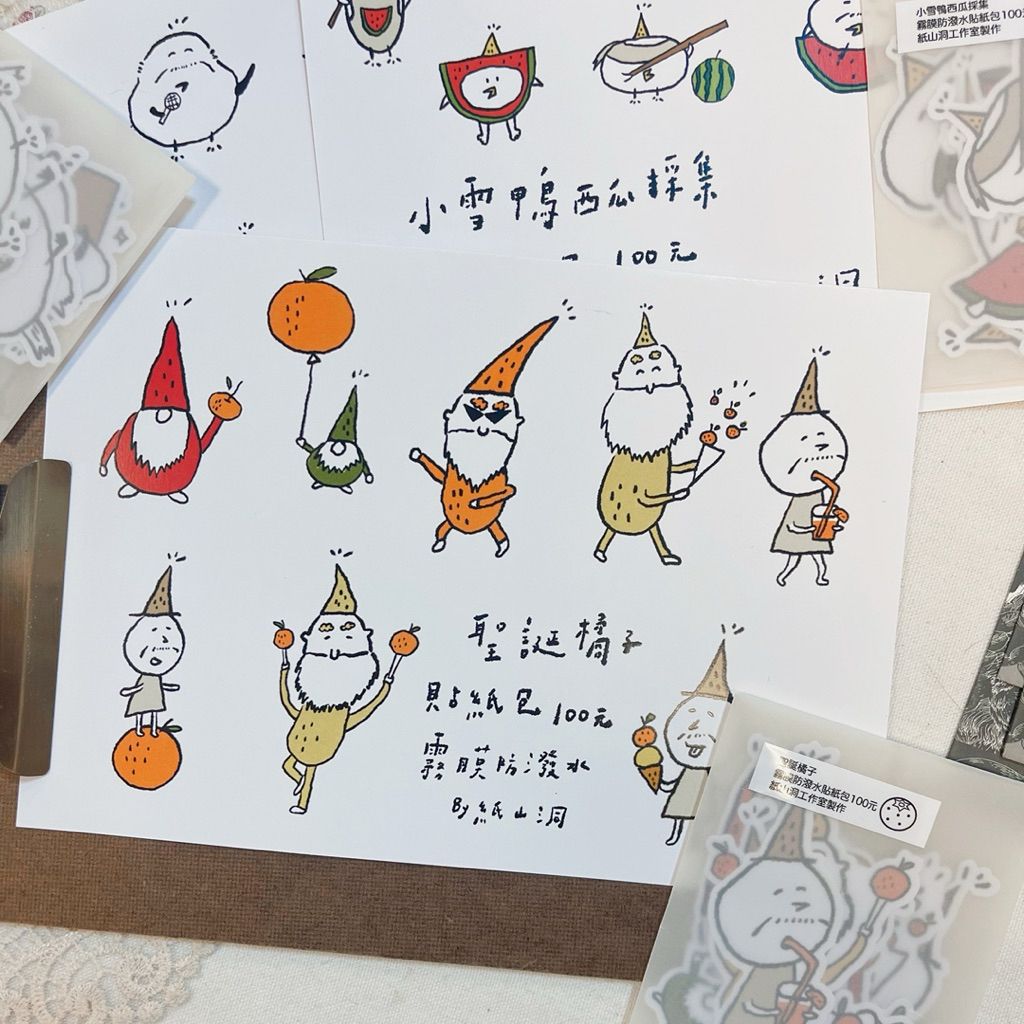 小雪鴨西瓜採集
霧膜防潑水貼紙包100元
紙山洞工作室製作
小雪鴨西瓜採集
100元
洞
聖誕橘子
貼紙包 100元
霧膜防潑水
By 紙山洞
聖誕橘子
霧膜防潑水貼紙包100元
紙山洞工作室製作